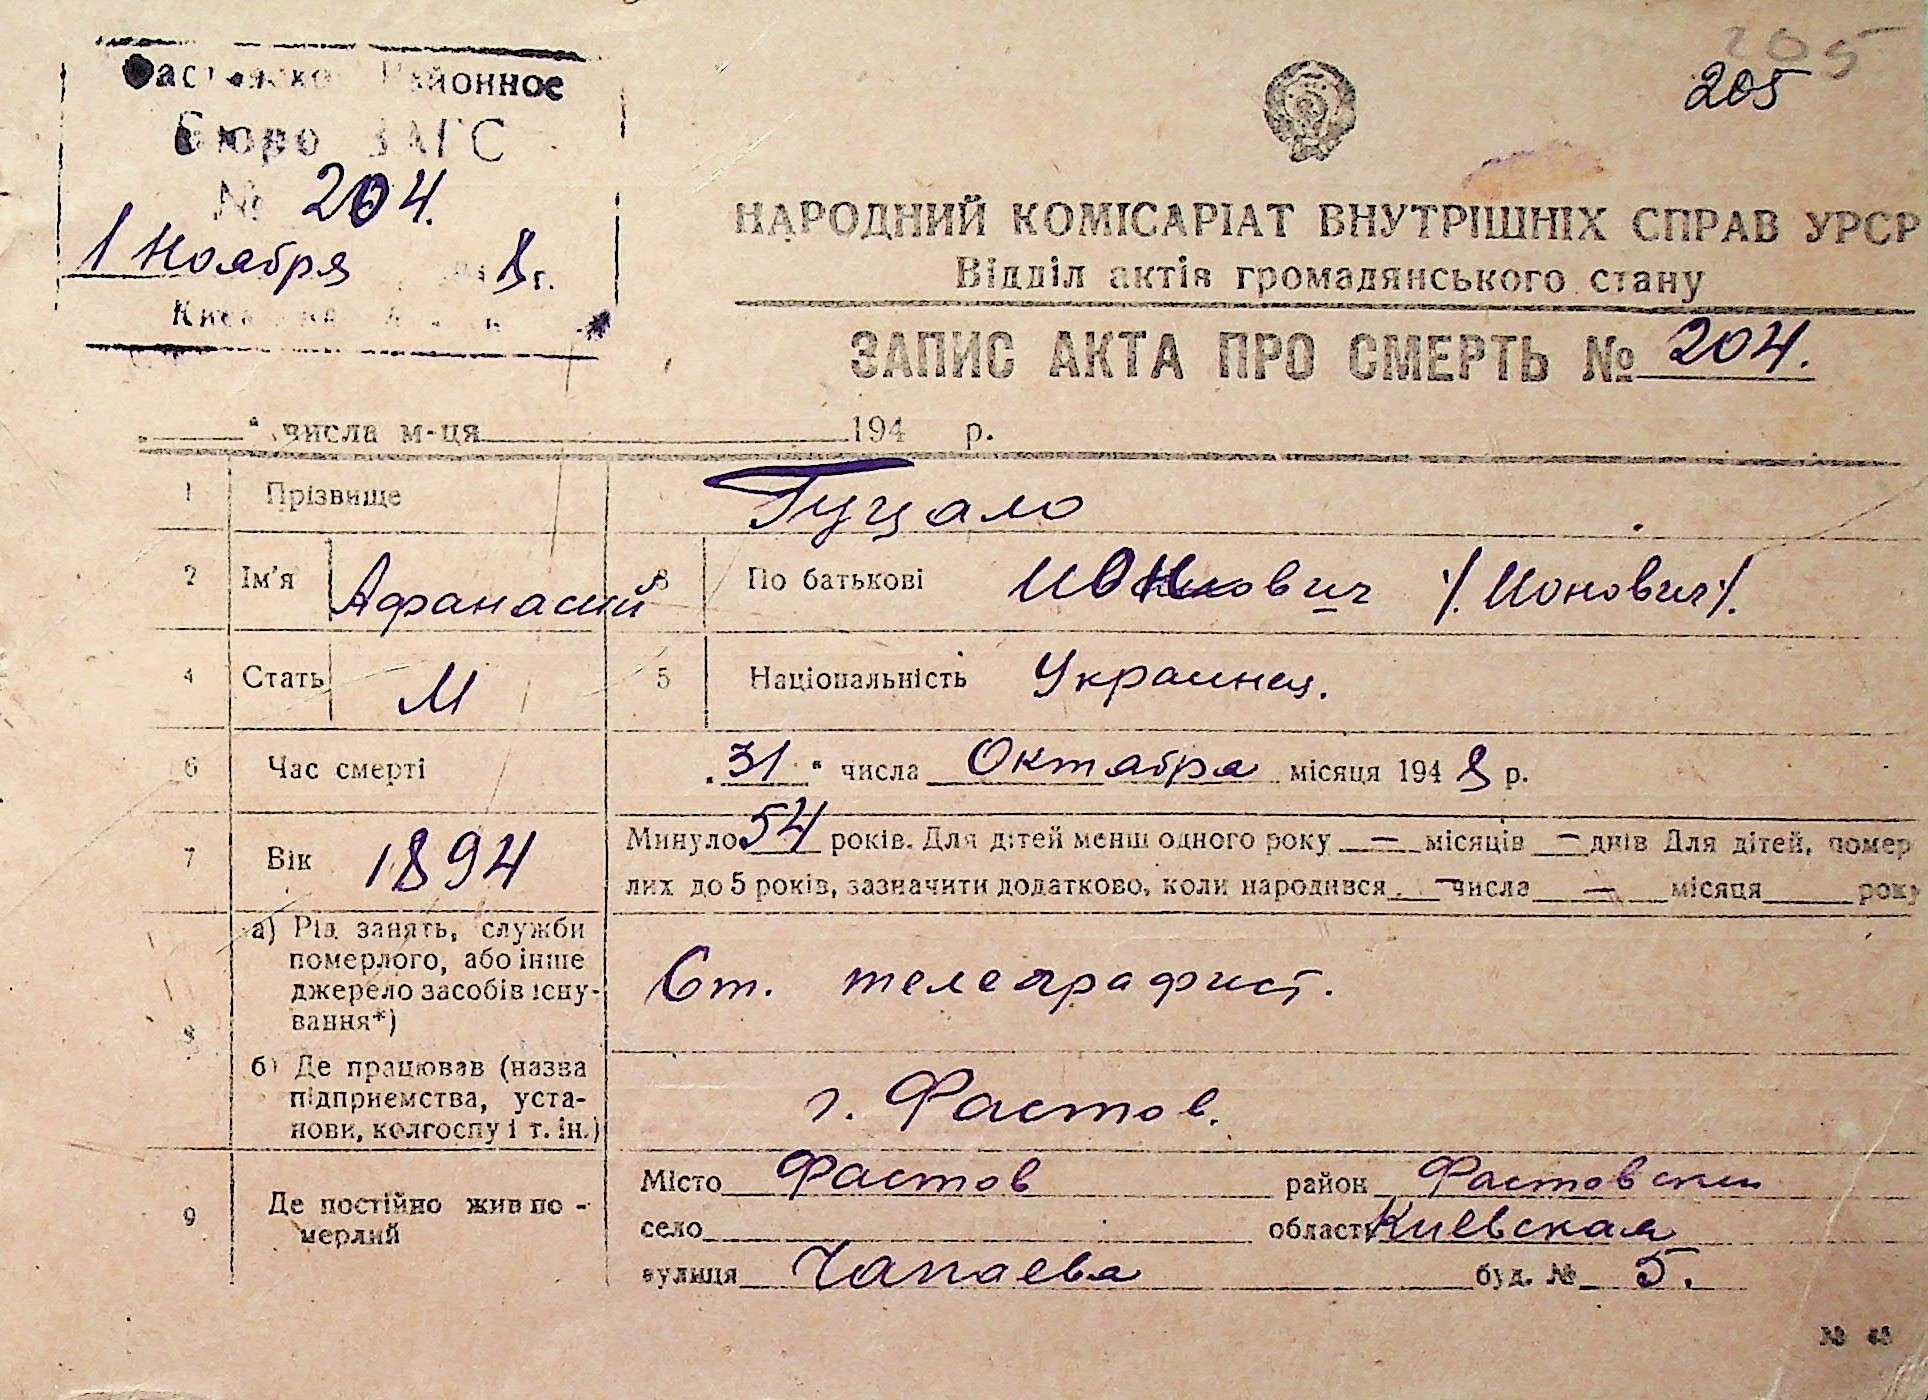 205
205
Районное
Бюро ЗАГС
№ 204.
1 Ноября 8 г.
НАРОДНИЙ КОМІСАРІАТ ВНУТРІШНІХ СПРАВ УРСР
Відділ актів громадянського стану
ЗАПИС АКТА ПРО СМЕРТЬ № 204.
„ “ числа м-ця 194 р.
1 Прізвище Гуцало
2 Ім'я Афанасий 3 По батькові Ионович /. Ионович/.
4 Стать М 5 Національність Украинец.
6 Час смерті „31“ числа Октабра місяця 1948 р.
7 Вік 1894 Минуло 54 років. Для дітей менш одного року — місяців — днів Для дітей, помер
лих до 5 років, зазначити додатково, коли народився — числа — місяця року
8 а) Рід занять, служби
померлого, або інше
джерело засобів існу-
вання*) Ст. телеграфист.
б) Де працював (назва
підприємства, уста-
нови, колгоспу і т. ін.) г. Фастов.
9 Де постійно жив по-
мерлий
Місто Фастов район Фастовский
село область Киевская
вулиця Чапаева буд. № 5.